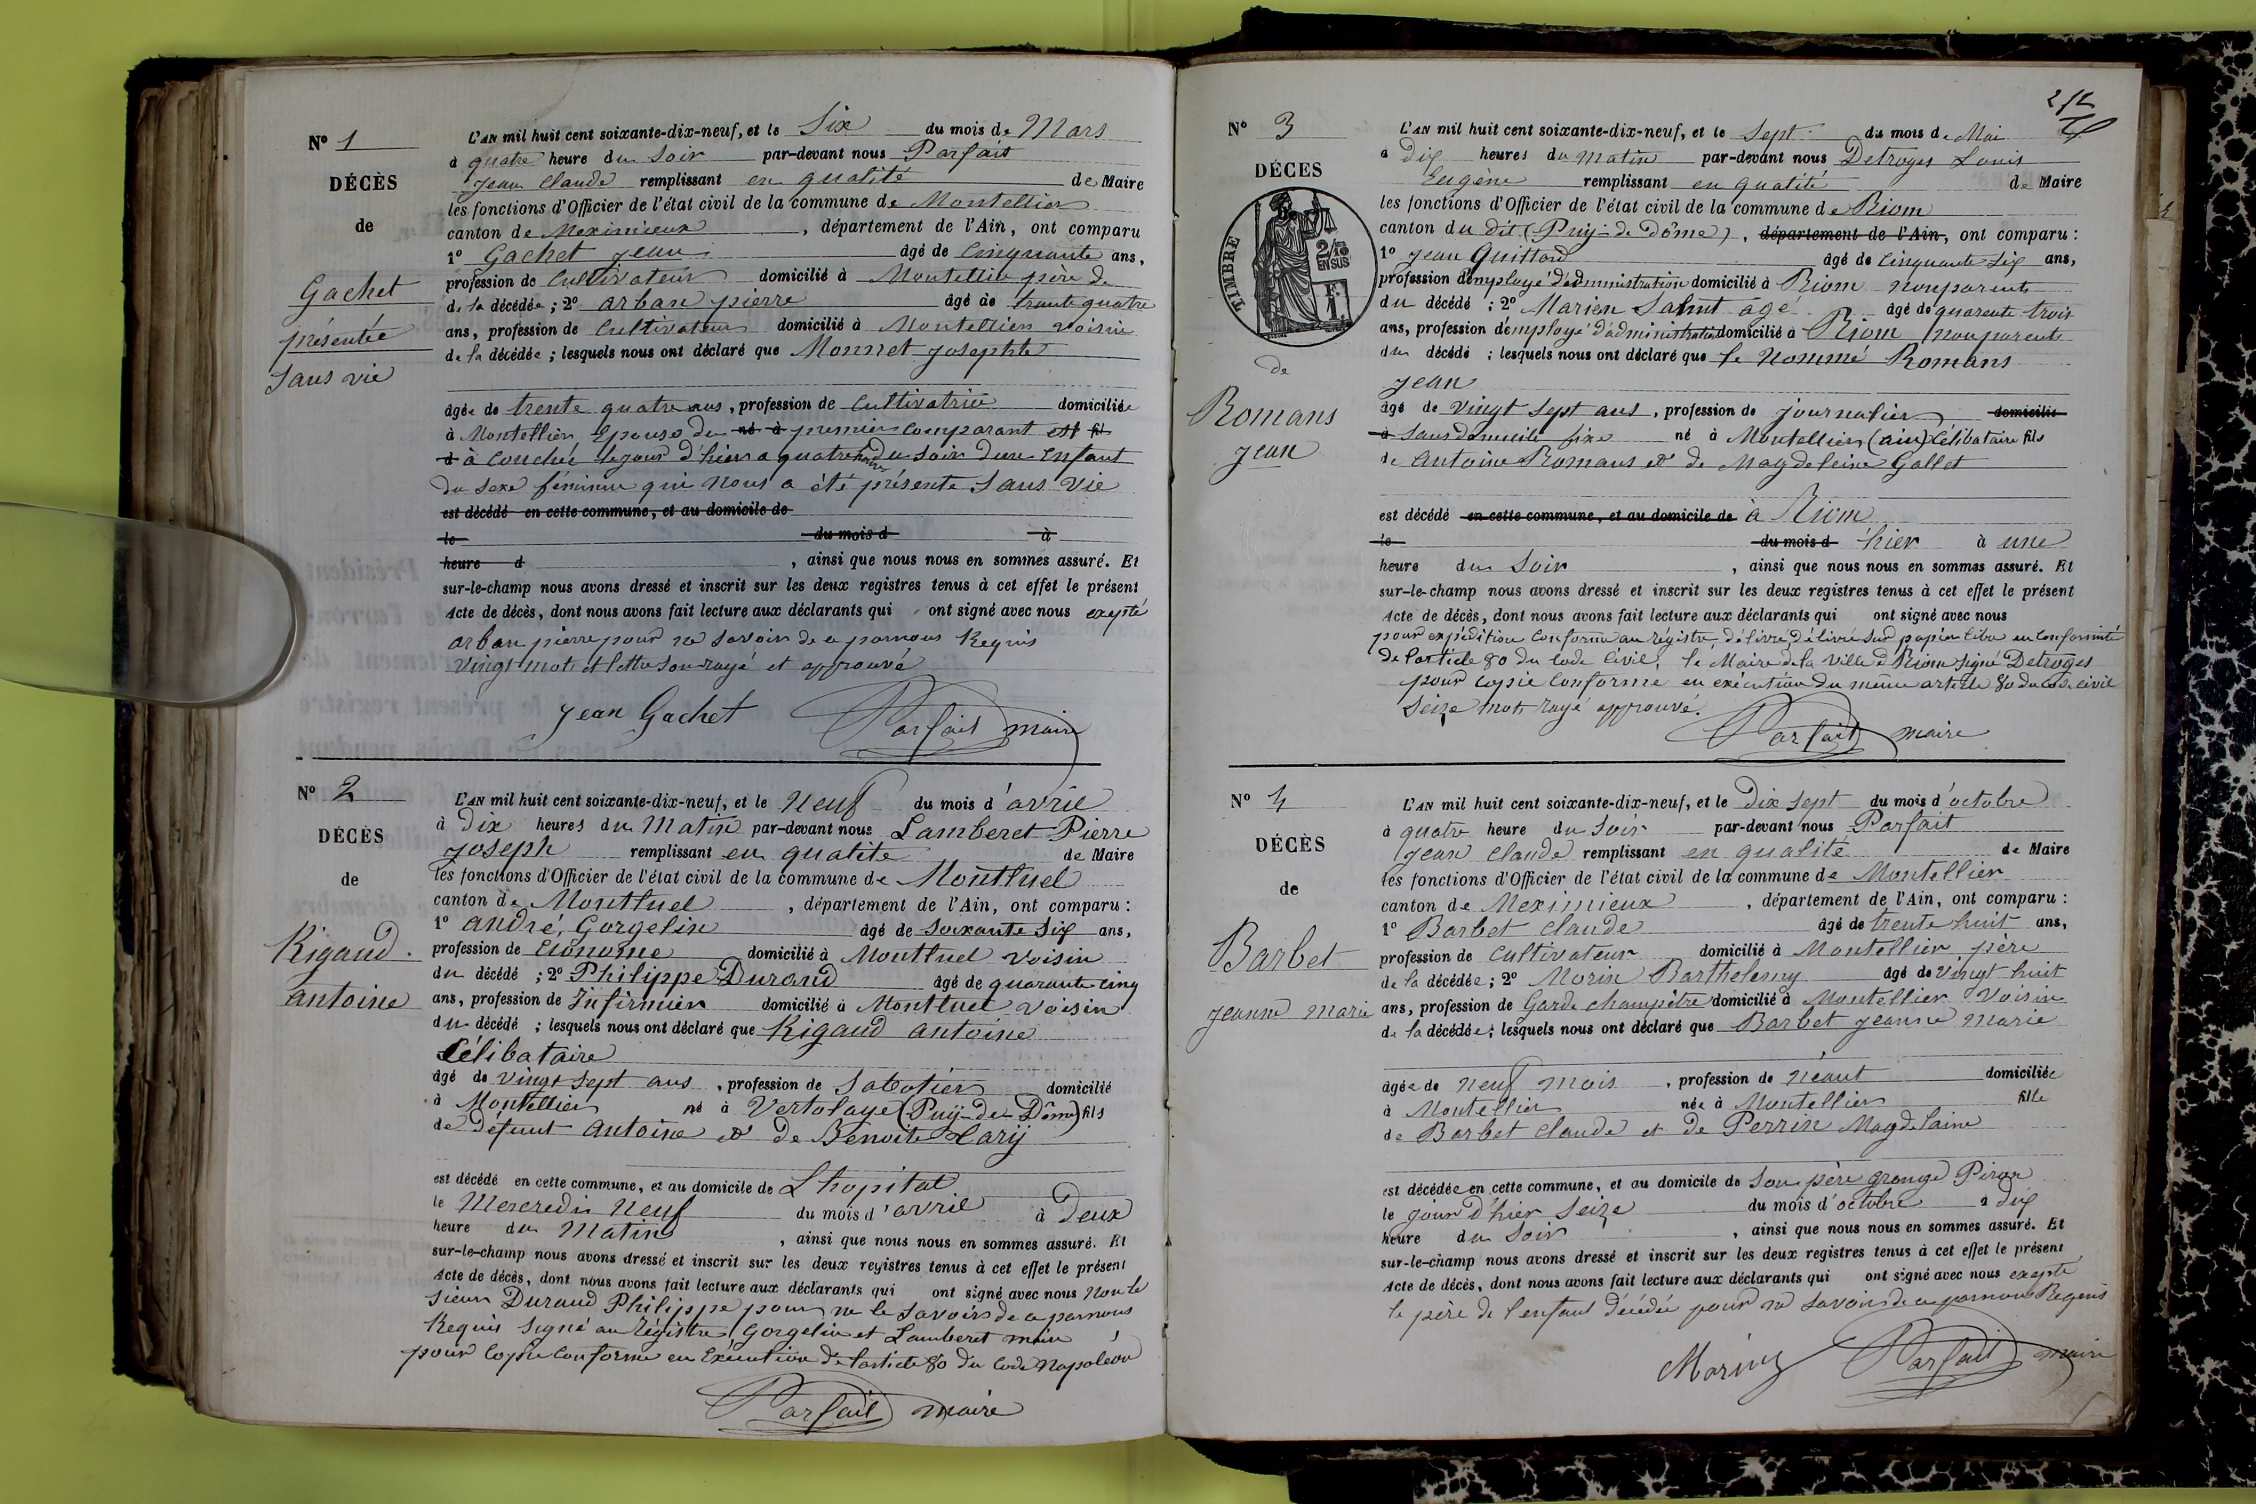 N° 1
DÉCÈS
de
Gachet
présentée
sans vie
L'AN mil huit cent soixante-dix-neuf, et le Six du mois de Mars
à quatre heure du soir par-devant nous Parfait
Jean Claude remplissant en qualité de Maire
les fonctions d'Officier de l'état civil de la commune de Montellier
canton de Meximieux, département de l'Ain, ont comparu
1° Gachet Jean âgé de Cinquante ans,
profession de Cultivateur domicilié à Montellier père de
de la décédée ; 2° arban pierre âgé de trente quatre
ans, profession de Cultivateur domicilié à Montellier voisin
de la décédée ; lesquels nous ont déclaré que Monnet Josephte
âgée de trente quatre ans, profession de Cultivatrice domiciliée
à Montellier, Epouse du né à premier comparant est fil
d à couchée le jour d'hier a quatre heures du soir d'une Enfant
du sexe féminin qui nous a été présente Sans Vie
est décédé en cette commune, et au domicile de
le du mois d à
heure d , ainsi que nous nous en sommes assuré. Et
sur-le-champ nous avons dressé et inscrit sur les deux registres tenus à cet effet le présent
Acte de décès, dont nous avons fait lecture aux déclarants qui ont signé avec nous exepté
arban pierre pour ne savoir de a parnous Requis
Vingt mot et lettre son rayé et approuvé
Jean Gachet Parfait maire
N° 2
DÉCÈS
de
Rigaud
antoine
L'AN mil huit cent soixante-dix-neuf, et le Neuf du mois d'avril
à Dix heures du Matin par-devant nous Lamberet Pierre
Joseph remplissant en qualité de Maire
les fonctions d'Officier de l'état civil de la commune de Montluel
canton de Montluel, département de l'Ain, ont comparu :
1° andré, Gorgelin âgé de soixante six ans,
profession de Econome domicilié à Montluel voisin
du décédé ; 2° Philippe Durand âgé de quarante cinq
ans, profession de Infirmier domicilié à Montluel voisin
du décédé ; lesquels nous ont déclaré que Rigaud antoine
Célibataire
âgé de vingt sept ans, profession de Sabotier domicilié
à Montellier né à Vertolaye (Puy-de Dôme) fils
de défunt antoine et de Benoite Cary
est décédé en cette commune, et au domicile de L'hopital
le Mercredi Neuf du mois d'avril à Deux
heure du Matin, ainsi que nous nous en sommes assuré. Et
sur-le-champ nous avons dressé et inscrit sur les deux registres tenus à cet effet le présent
Acte de décès, dont nous avons fait lecture aux déclarants qui ont signé avec nous Non le
sieur Durand Philippe pour ne le savoir de a parnous
Requis signé au régistre Gorgelin et Lamberet maire
pour copie conforme en Exécution de l'article 80 du Code Napoléon
Parfait maire
N° 3
DÉCES
TIMBRE
2/10
EN SUS
F.
1
de
Romans
Jean
L'AN mil huit cent soixante-dix-neuf, et le Sept du mois de Mai
à dix heures du matin par-devant nous Detroges Louis
Eugène remplissant en qualité de Maire
les fonctions d'Officier de l'état civil de la commune de Riom
canton du dit (Puy-de Dôme), département de l'Ain, ont comparu :
1° Jean Guittard âgé de Cinquante six ans,
profession d'employé d'administration domicilié à Riom nonparent
du décédé ; 2° Marien Salmt âgé âgé de quarente trois
ans, profession d'employé d'administration domicilié à Riom nonparent
du décédé ; lesquels nous ont déclaré que le nommé Romans
Jean
âgé de vingt sept ans, profession de journalier domicilié
à sans domicile fixe né à Montellier (ain) Célibataire fils
de antoine Romans et de Magdeleine Gallet
est décédé en cette commune, et au domicile de à Riom
le du mois d hier à une
heure du Soir, ainsi que nous nous en sommes assuré. Et
sur-le-champ nous avons dressé et inscrit sur les deux registres tenus à cet effet le présent
Acte de décès, dont nous avons fait lecture aux déclarants qui ont signé avec nous
pour expédition conforme au régistre, délivré délivré sur papier libre en conformité
de l'article 80 du Code civil, le Maire de la Ville d Riom signé Detroges
pour copie conforme en exécution du même article 80 du code civil
Seize mots rayé approuvé.
Parfait maire
N° 4
DÉCÈS
de
Barbet
jeanne marie
L'AN mil huit cent soixante-dix-neuf, et le Dix sept du mois d'octobre
à quatre heure du soir par-devant nous Parfait
Jean Claude remplissant en qualité de Maire
les fonctions d'Officier de l'état civil de la commune de Montellier
canton de Meximieux, département de l'Ain, ont comparu :
1° Barbet Claude âgé de trente huit ans,
profession de Cultivateur domicilié à Montellier père
de la décédée ; 2° Morin Barthelemy âgé de vingt huit
ans, profession de Garde champêtre domicilié à Montellier Voisin
de la décédée ; lesquels nous ont déclaré que Barbet Jeanne Marie
âgée de neuf mois, profession de néant domiciliée
à Montellier née à Montellier fille
de Barbet Claude et de Perrin Magdelaine
est décédée en cette commune, et au domicile de son père grange Piron
le jour d'hier Seize du mois d'octobre à dix
heure du soir, ainsi que nous nous en sommes assuré. Et
sur-le-champ nous avons dressé et inscrit sur les deux registres tenus à cet effet le présent
Acte de décès, dont nous avons fait lecture aux déclarants qui ont signé avec nous exepté
le père de l'enfant décédée pour ne savoir de a parnous Requis
Morin Parfait maire